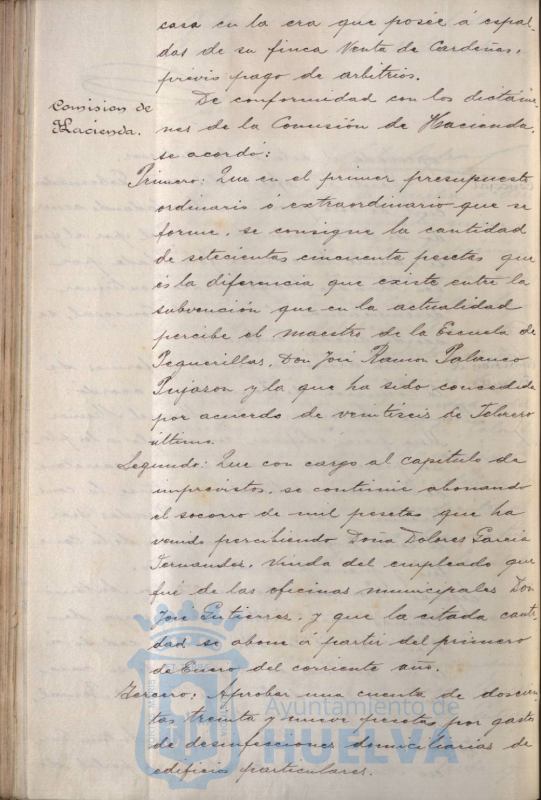 casa en la era que posée á espal-
das de su finca Venta de Cardeñas,
previo pago de arbitrios.
Comision de
Hacienda.
De conformidad con los dictáme-
nes de la Comisión de Hacienda,
se acordó:
Primero: Que en el primer presupuesto
ordinario ó extraordinario que se
forme, se consigne la cantidad
de setecientas cincuenta pesetas que
és la diferencia que existe entre la
subvención que en la actualidad
percibe el maestro de la Escuela de
Peguerillas, Don José Ramon Palanco
Pujazon y la que ha sido concedida
por acuerdo de veintiseis de Febrero
último.
Segundo: Que con cargo al capítulo de
imprevistos, se continúe abonando
el socorro de mil pesetas que ha
venido percibiendo Doña Dolores García
Fernandez, Viuda del empleado que
fué de las oficinas municipales Don
José Gutierrez, y que la citada canti-
dad se abone á partir del primero
de Enero del corriente año.
Tercero: Aprobar una cuenta de doscien-
tas treinta y nueve pesetas por gastos
de desinfecciones domiciliarias de
edificios particulares.
Ayuntamiento de
HUELVA